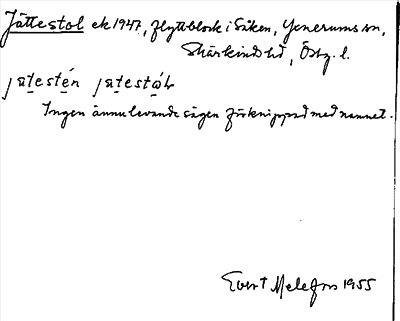 Jättestol ek 1947, flyttblock i Siken, Yxnerums sn,
Skärkinds hd, Östg. l.
jatestén jatestól
Ingen ännu levande sägen förknippad med namnet.
Evert Melefors 1955